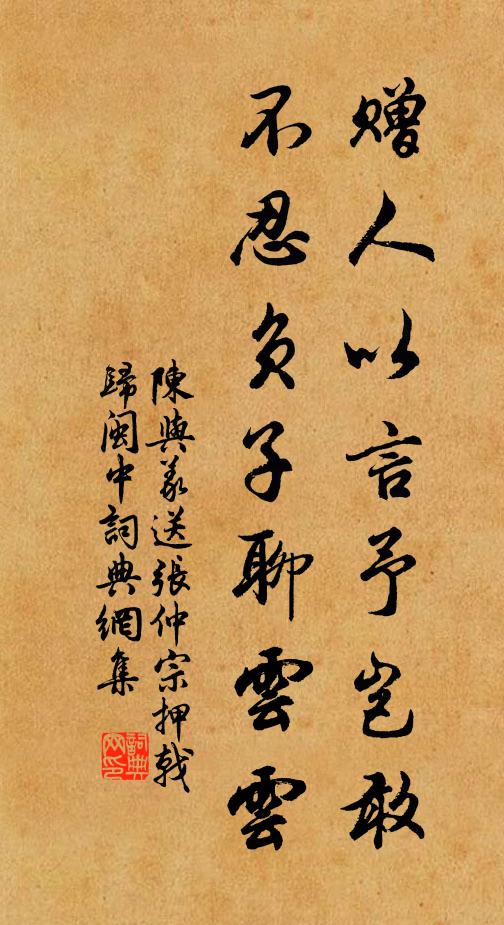 赠人以言予岂敢
不忍负子聊雲雲
陳與義送張仲宗押戟
歸閩中詞典網集
詞典
网印